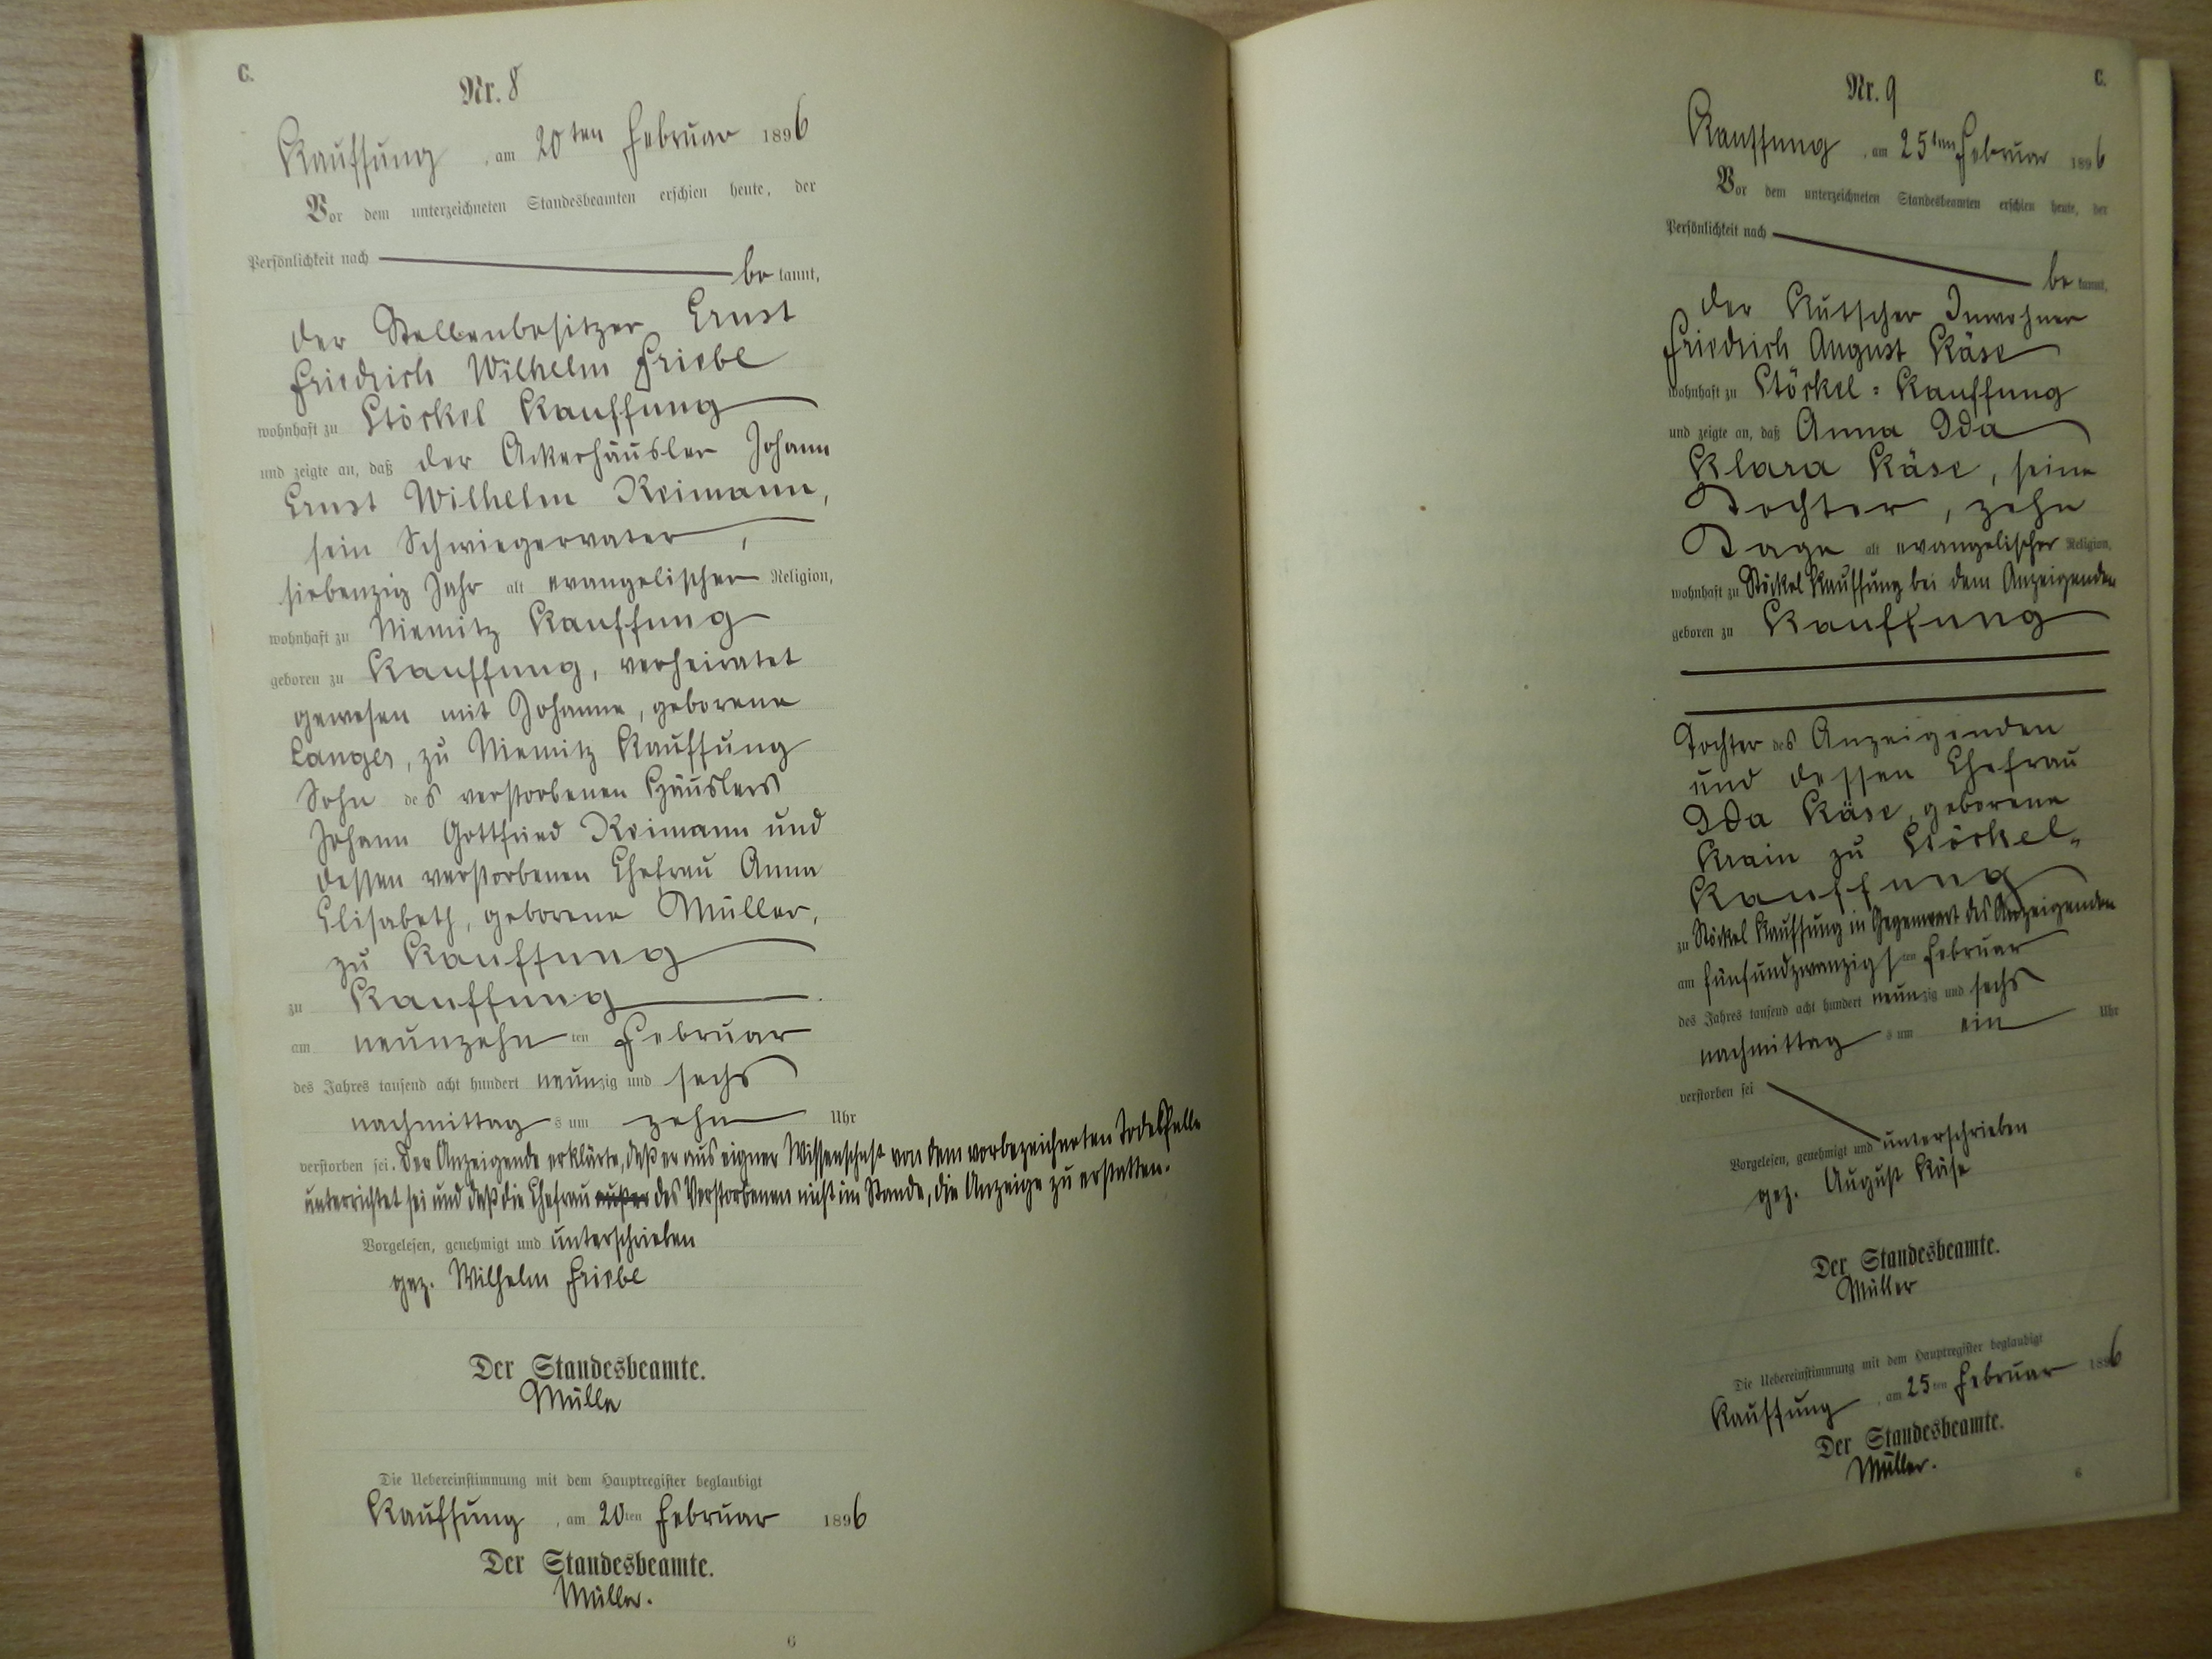 C.
Nr. 8
Kauffung, am 20ten Februar 1896
Vor dem unterzeichneten Standesbeamten erschien heute, der
Persönlichkeit nach
bekannt,
der Stellenbesitzer Ernst
Friedrich Wilhelm Friebe
wohnhaft zu Stöckel Kauffung
und zeigte an, daß der Ackerhäusler Johann
Ernst Wilhelm Reimann,
sein Schwiegervater,
siebenzig Jahr alt evangelischer Religion,
wohnhaft zu Niemitz Kauffung
geboren zu Kauffung, verheiratet
gewesen mit Johanne, geborene
Langer, zu Niemitz Kauffung
Sohn des verstorbenen Häuslers
Johann Gottfried Reimann und
dessen verstorbenen Ehefrau Anna
Elisabeth, geborene Müller,
zu Kauffung
zu Kauffung
am neunzehnten Februar
des Jahres tausend acht hundert neunzig und sechs
nachmittags um zehn Uhr
verstorben sei. Der Anzeigende erklärte, daß er aus eigner Wissenschaft von dem vorbezeichneten Todesfalle
unterrichtet sei und daß die Ehefrau des Verstorbenen nicht im Stande, die Anzeige zu erstatten.
Vorgelesen, genehmigt und unterschrieben
gez. Wilhelm Friebe
Der Standesbeamte.
Müller
Die Uebereinstimmung mit dem Hauptregister beglaubigt
Kauffung, am 20ten Februar 1896
Der Standesbeamte.
Müller.
6
C.
Nr. 9
Kauffung, am 25ten Februar 1896
Vor dem unterzeichneten Standesbeamten erschien heute, der
Persönlichkeit nach
bekannt,
der Kutscher Inwohner
Friedrich August Käse
wohnhaft zu Stöckel-Kauffung
und zeigte an, daß Anna Ida
Klara Käse, seine
Tochter, zehn
Tage alt evangelischer Religion,
wohnhaft zu Stöckel Kauffung bei dem Anzeigenden
geboren zu Kauffung
Tochter des Anzeigenden
und dessen Ehefrau
Ida Käse, geborene
Krain zu Stöckel-
Kauffung
zu Stöckel Kauffung in Gegenwart des Anzeigenden
am fünfundzwanzigsten Februar
des Jahres tausend acht hundert neunzig und sechs
nachmittags um ein Uhr
verstorben sei
Vorgelesen, genehmigt und unterschrieben
gez. August Käse
Der Standesbeamte.
Müller
Die Uebereinstimmung mit dem Hauptregister beglaubigt
Kauffung, am 25ten Februar 1896
Der Standesbeamte.
Müller.
6